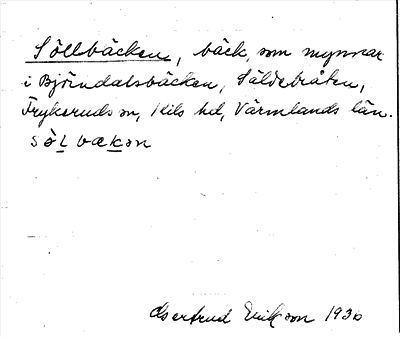 Söllbäcken, bäck, som mynnar
i Björndalsbäcken, Säldebråten,
Frykeruds sn, Kils hd, Värmlands län.
sö̀l bækən
Gertrud Erikson 1930